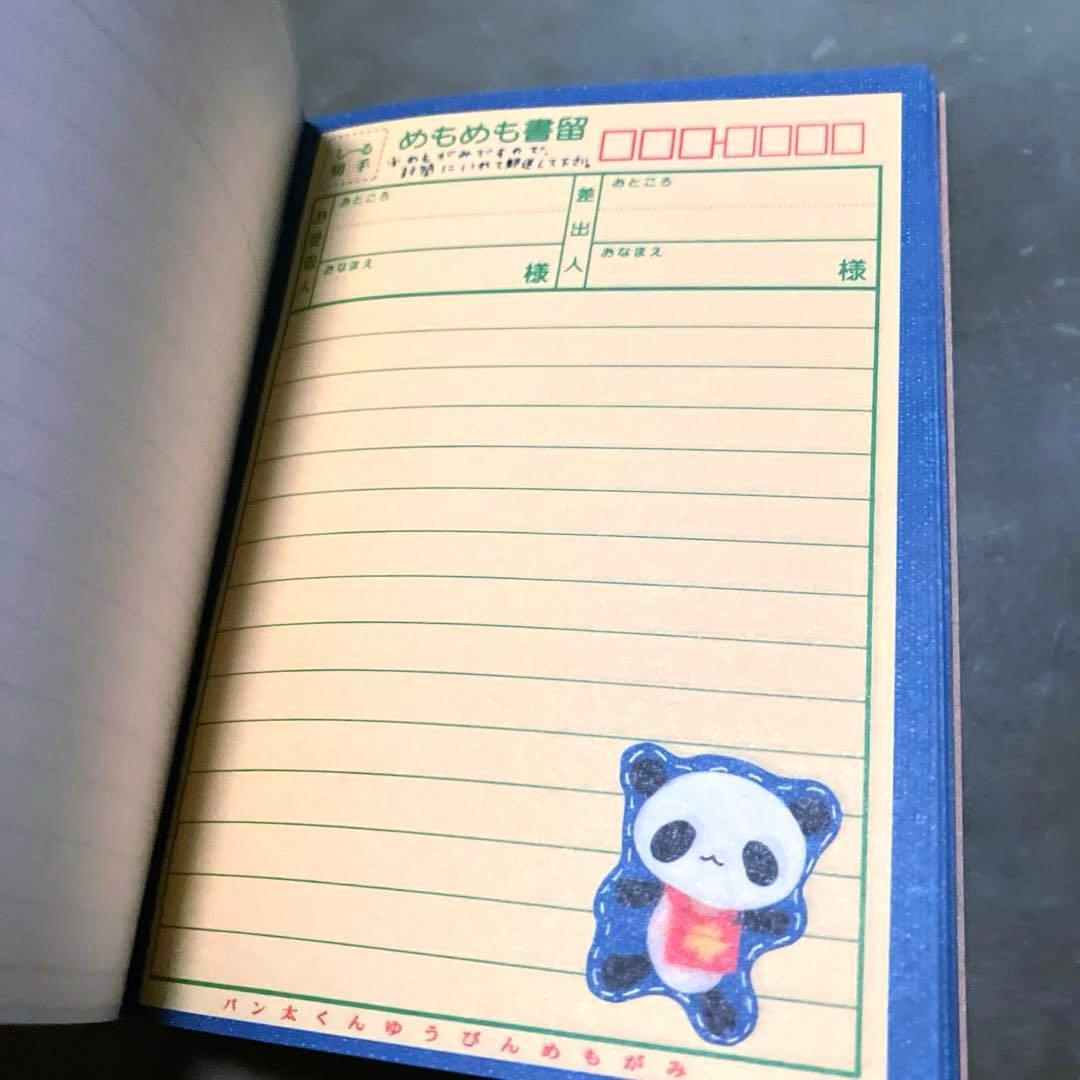 めもめも書留
しーる
切手
※めもがみですので、
封筒にいれて郵送して下さい。
おところ
おなまえ
様
お受取人
差出人
おところ
おなまえ
様
パン太くんゆうびんめもがみ